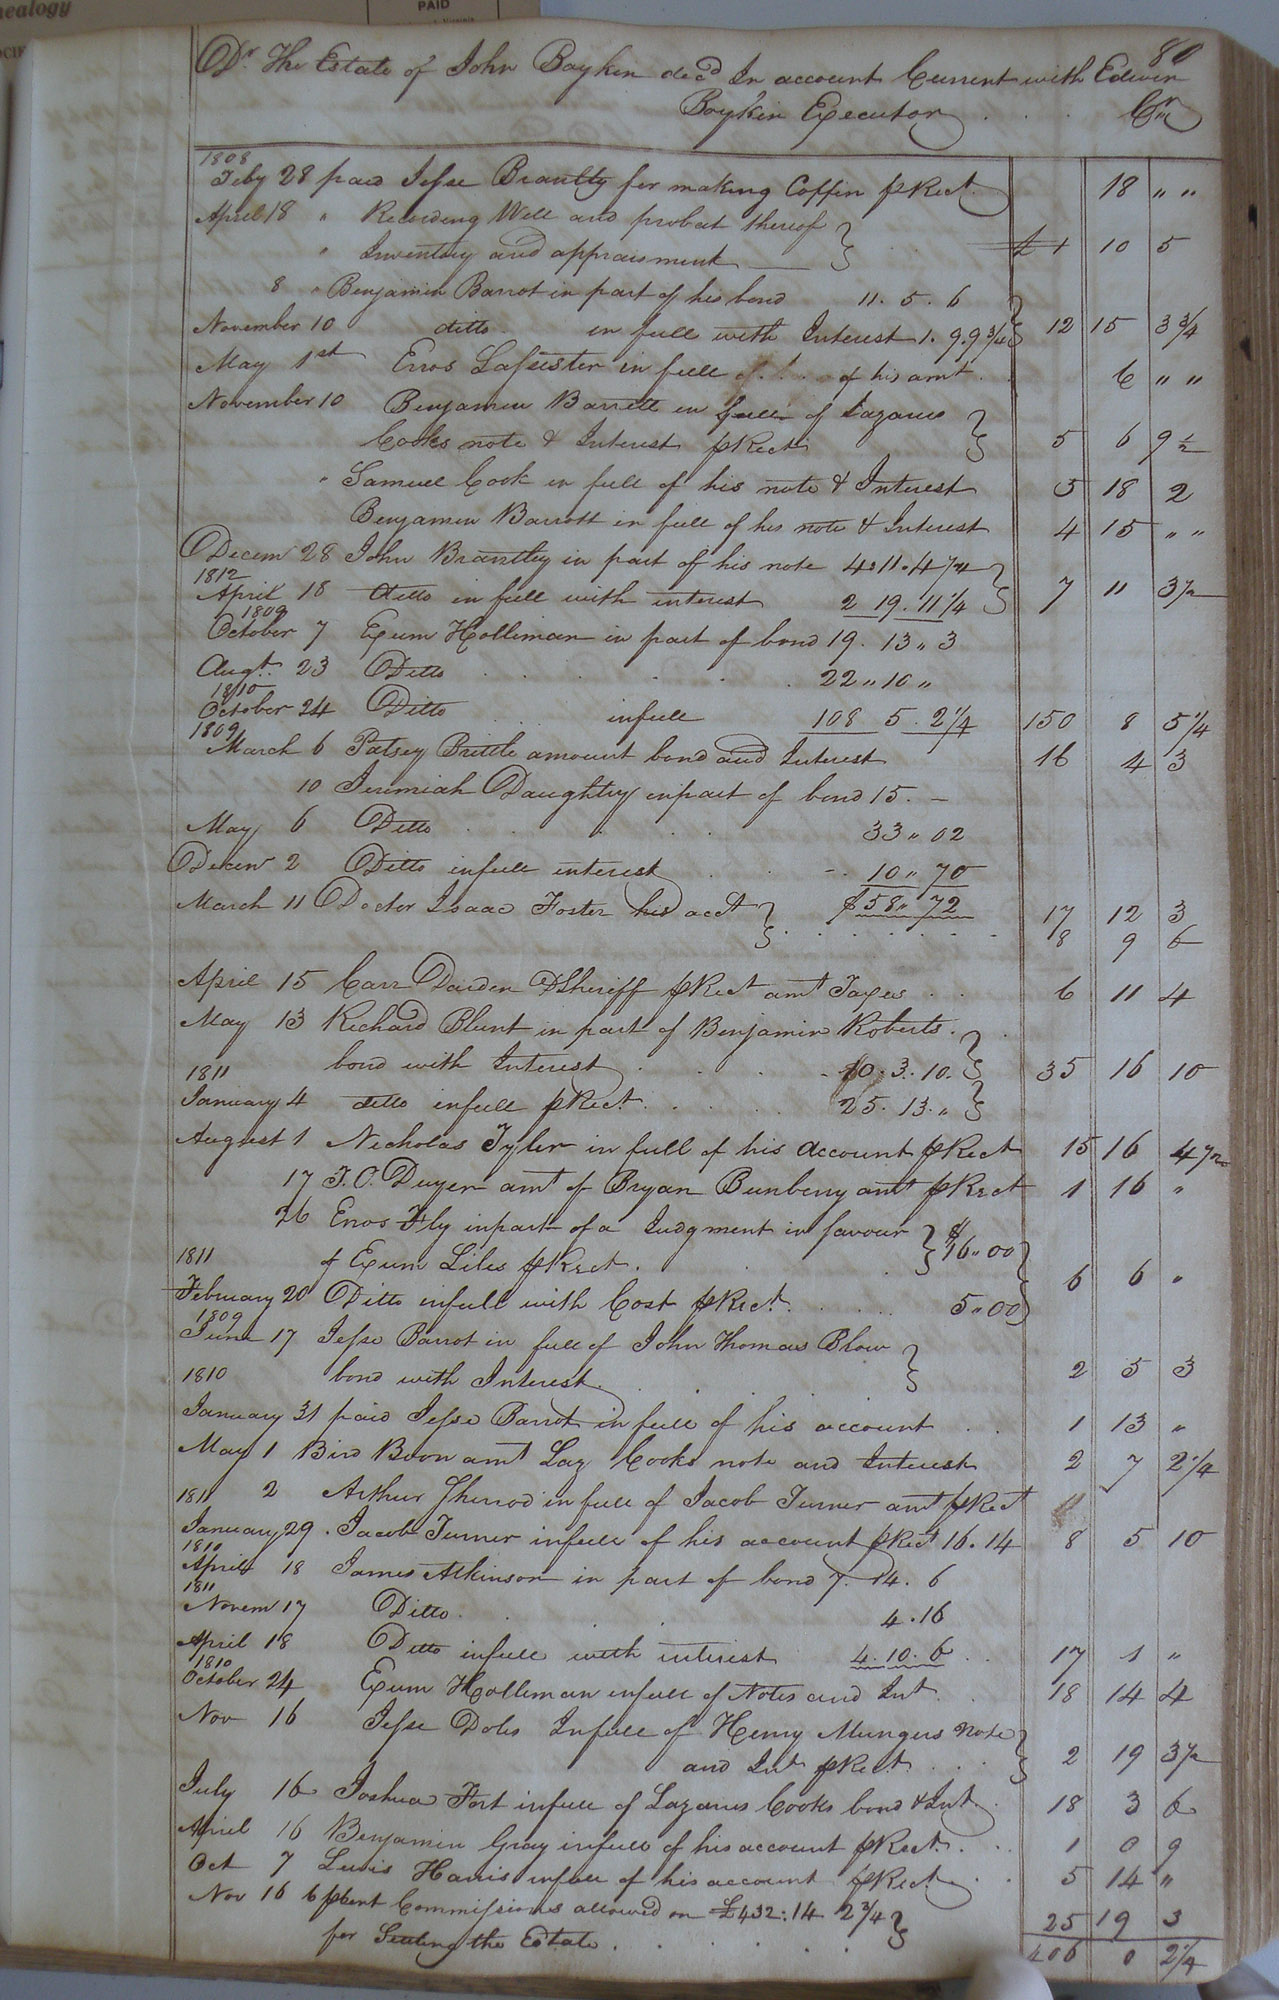 nealogy
PAID
80
Dr The Estate of John Boykin decd In account Current with Edwin
Boykin Executor Cr
1808
Feby 28 paid Jesse Brantley for making Coffin p Rect 18 " "
April 18 " Recording Will and probat thereof
" Inventory and appraisment £1 10 5
8 " Benjamin Barrot in part of his bond 11. 5. 6
November 10 ditto in full with Interest 1. 9. 9 3/4 12 15 3 3/4
May 1st Enos in full of his amt 6 " "
November 10 Benjamin Barrett in full of Lazarus
Cooks note & Interest p Rect 5 6 9 1/2
" Samuel Cook in full of his note & Interest 5 18 2
Benjamin Barrott in full of his note & Interest 4 15 " "
Decem 28 John Brantley in part of his note 4.11.4 1/4
1812
April 18 ditto in full with interest 2 19. 11 1/4 7 11 3 1/2
1809
October 7 Exum Holliman in part of bond 19. 13 " 3
Augt. 23 Ditto 22 " 10 "
1810
October 24 Ditto infull 108 5. 2 1/4 150 8 5 1/4
1809
March 6 Patsey Brittle amount bond and Interest 16 4 3
10 Jeremiah Daughtry inpart of bond 15. —
May 6 Ditto 33 " 02
Decem 2 Ditto infull interest 10 " 70
March 11 Doctor Isaac Foster his acct $58 " 72 17 12 3
18 9 6
April 15 Carr Darden DSheriff p Rect amt Taxes 6 11 4
May 13 Richard Blunt in part of Benjamin Roberts
bond with Interest 10. 3. 10. 35 16 10
1811
January 4 ditto infull p Rect. 25. 13. "
August 1 Nicholas Tyler in full of his account p Rect 15 16 4 1/2
17 J. O. Duyer amt of Bryan Bunberry amt p Rect 1 16 "
26 Enos Fly inpart of a Judgment in favour
$16 " 00
1811 of Exum Liles p Rect. 6 6 "
February 20 Ditto infull with Cost p Rect. 5 " 00
1809
June 17 Jesse Barrot in full of John Thomas Blow
1810 bond with Interest 2 5 3
January 31 paid Jesse Barrot in full of his account 1 13 "
May 1 Bird Boon amt Laz Cooks note and Interest 2 7 2 1/4
1811 2 Arthur Sherrod in full of Jacob Turner amt p Rect
January 29. Jacob Turner infull of his account p Rect 16. 14 8 5 10
1810
April 18 James Atkinson in part of bond 7. 14. 6
1811
Novem 17 Ditto 4. 16
April 18 Ditto infull with interest 4. 10. 6 17 1 "
1810
October 24 Exum Holliman infull of Notes and Int. 18 14 4
Nov 16 Jesse Doles Infull of Henry Mungers Note
and Int p Rect 2 19 3 1/2
July 16 Joshua Fort infull of Lazarus Cooks bond & Int. 18 3 6
April 16 Benjamin Gray infull of his account p Rect. 1 0 9
Oct 7 Lewis Harris infull of his account p Rect 5 14 "
Nov 16 6 p Cent Commissions allowed on £432:14 2 3/4
for Settling the Estate 25 19 3
406 0 2 1/4